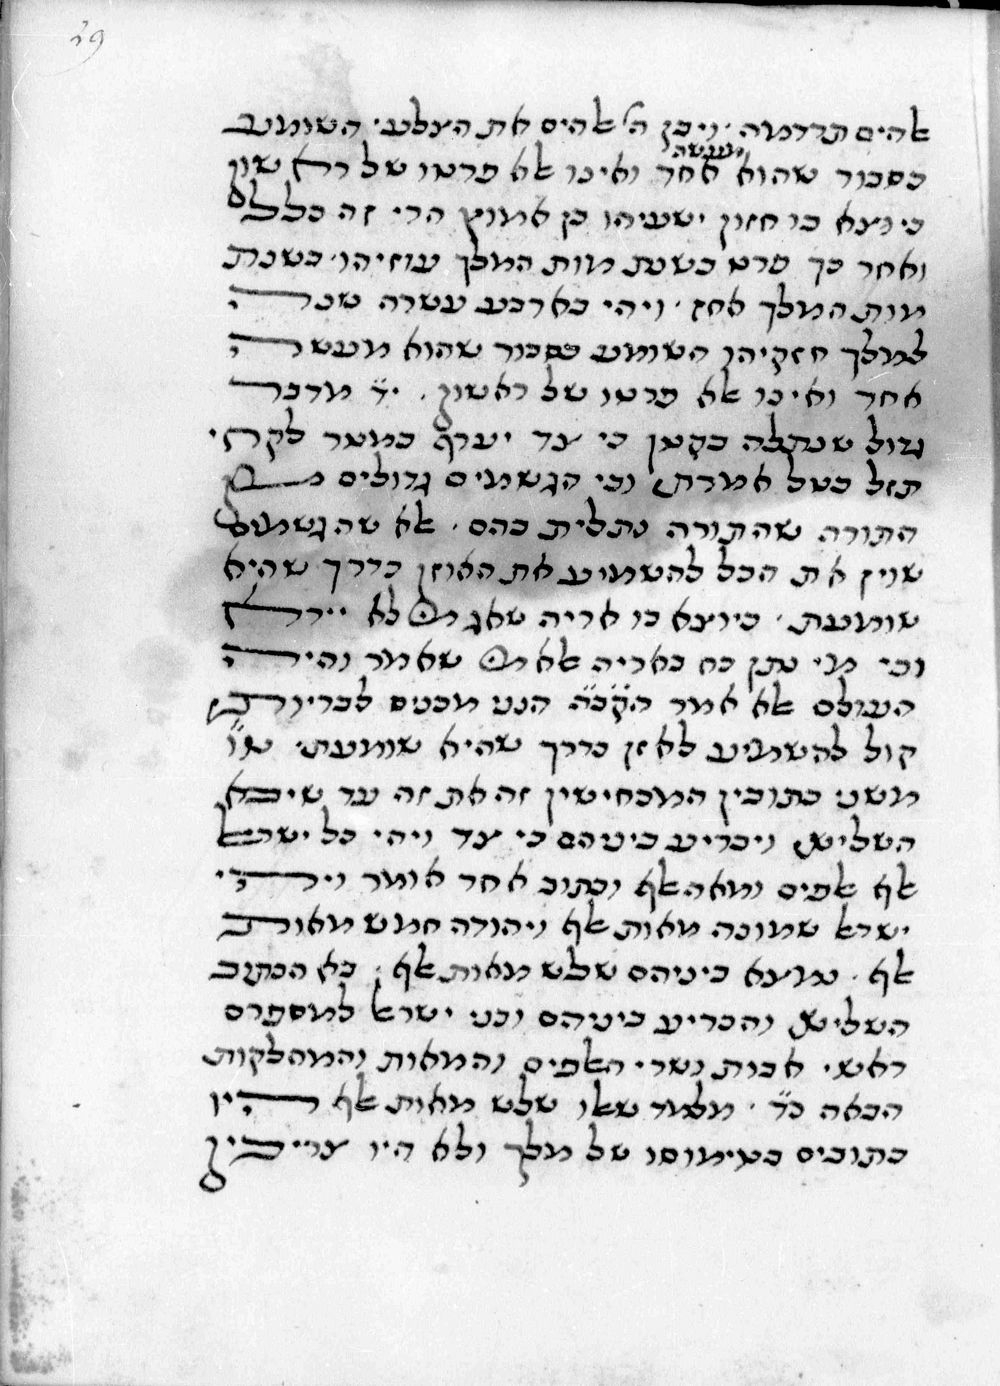 29
אלהים תרדמה · ויבן ה' אלהים את הצלע · השומע
מעשה
כסבור שהוא אחר ואינו אלא פרטו של ראשון
כיוצא בו חזון ישעיהו בן אמוץ הרי זה כלל
ואחר כך פרט בשנת מות המלך עוזיהו · בשנת
מות המלך אחז · ויהי בארבע עשרה שנה
למלך חזקיהו השומע כסבור שהוא מעשה
אחר ואינו אלא פרטו של ראשון . י״ד מדבר
גדול שנתלה בקטן כי צד יערף כמטר לקחי
תזל כטל אמרתי וכי הגשמים גדולים מן
התורה שהתורה נתלית בהם · אלא שהגשמים
שוין את הכל להשמיע את האוזן כדרך שהיא
שומעת · כיוצא בו אריה שאג מי לא יירא
וכי מי נתן כח באריה אלא מי שאמר והיה
העולם אלא אמר הקב״ה הננו מכנים לבריות
קול להשמיע לאזן כדרך שהיא שומעת · ט״ו
משני כתובין המכחישין זה את זה עד שיבא
השלישי ויכריע ביניהם כי צד ויהי כל ישראל
אלף אלפים ומאה אלף וכתוב אחד אומר ויהי
ישראל שמונה מאות אלף ויהודה חמש מאות
אלף · נמצא ביניהם שלש מאות אלף · בא הכתוב
השלישי והכריע ביניהם ובני ישראל למספרם
ראשי אבות ושרי האלפים והמאות והמחלקות
הבאה כ״ד · מלמד שאלו שלש מאות אלף היו
כתובים בטימוסו של מלך ולא היו צריכין